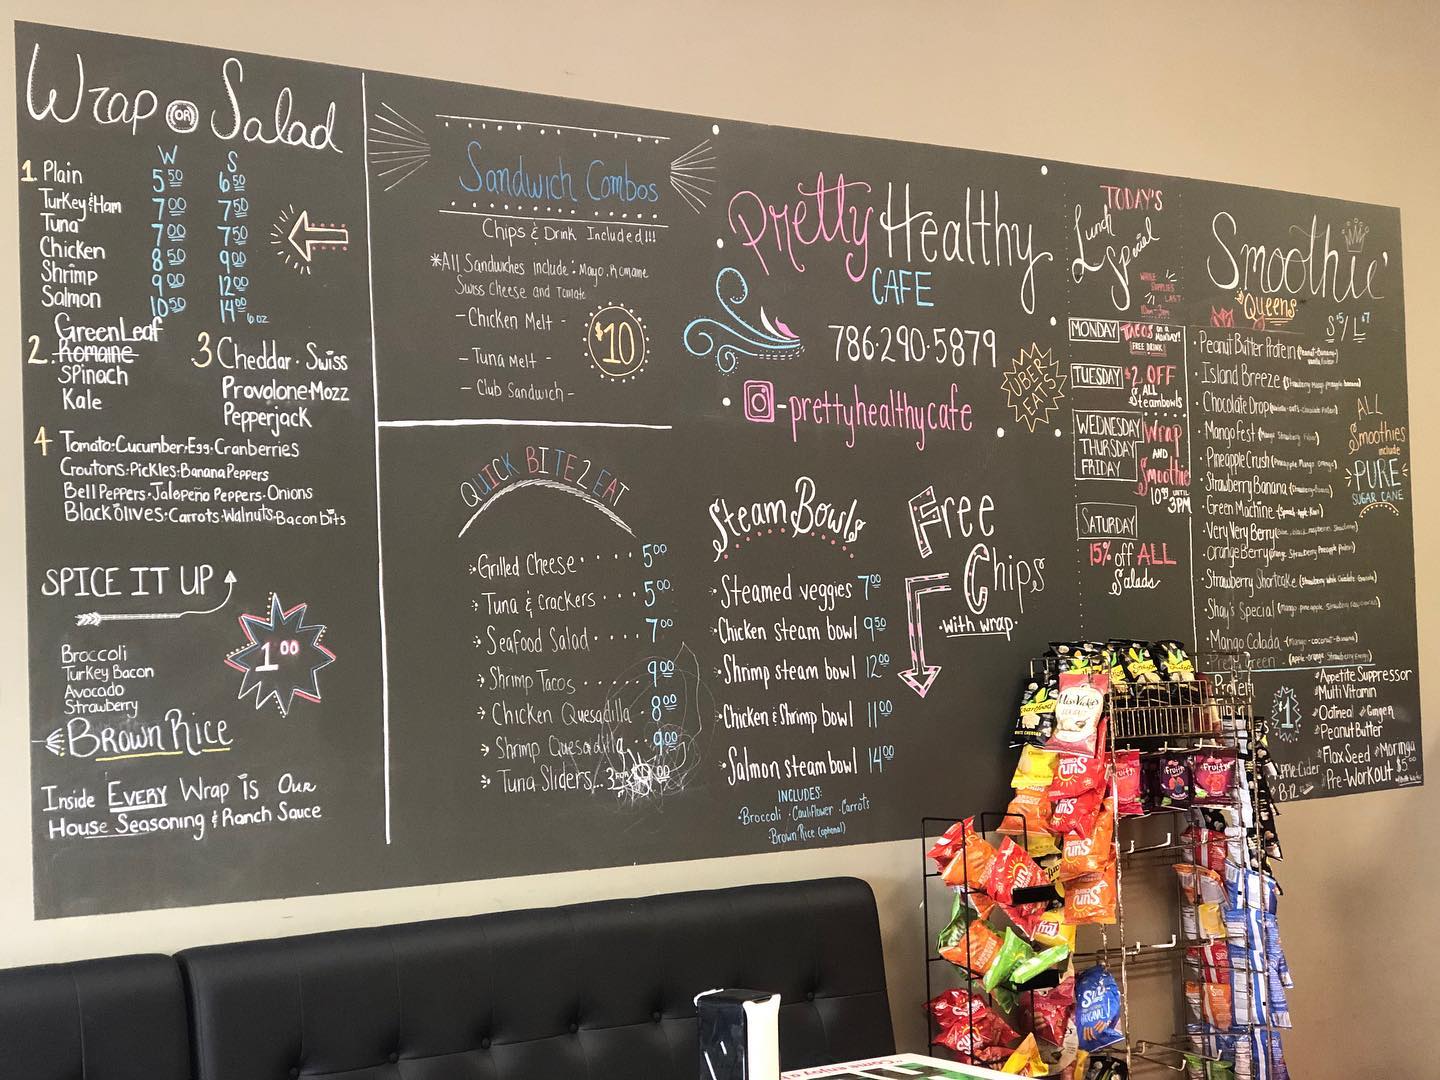 Wrap OR Salad
W S
1. Plain 5 50 6 50
Turkey & Ham 7 00 7 50
Tuna 7 00 7 50
Chicken 8 50 9 00
Shrimp 9 00 12 00
Salmon 10 50 14 00 6 oz
2. GreenLeaf
Romaine
Spinach
Kale
3 Cheddar · Swiss
Provolone · Mozz
Pepperjack
4 Tomato · Cucumber · Egg · Cranberries
Croutons · Pickles · Banana Peppers
Bell Peppers · Jalapeño Peppers · Onions
Black Olives · Carrots · Walnuts · Bacon bits
SPICE IT UP
1 00
Broccoli
Turkey Bacon
Avocado
Strawberry
Brown Rice
Inside Every Wrap is Our
House Seasoning & Ranch Sauce
Sandwich Combos
Chips & Drink Included!!!
*All Sandwiches include: Mayo, Romaine
Swiss Cheese and Tomato
- Chicken Melt -
- Tuna Melt -
- Club Sandwich -
$10
QUICK BITE 2 EAT
Grilled Cheese · · · · 5 00
Tuna & Crackers · · · 5 00
Seafood Salad · · · · 7 00
Shrimp Tacos · · · · 9 00
Chicken Quesadilla · 8 00
Shrimp Quesadilla · 9 00
Tuna Sliders... 3 for
Pretty Healthy
CAFE
786·290·5879
-prettyhealthycafe
UBER EATS
Steam Bowls
Steamed veggies 7 00
Chicken steam bowl 9 50
Shrimp steam bowl 12 00
Chicken & Shrimp bowl 11 00
Salmon steam bowl 14 00
INCLUDES:
·Broccoli ·Cauliflower ·Carrots
·Brown Rice (optional)
Free
Chips
·with wrap·
TODAY'S
Lunch
Special
WHILE
SUPPLIES
LAST
MONDAY TACOS on a
MONDAY!
FREE DRINK
TUESDAY $2 OFF
ALL
Steambowls
WEDNESDAY
THURSDAY
FRIDAY
Wrap
AND
Smoothie
10 99 UNTIL
3PM
SATURDAY
15% off ALL
Salads
Smoothie'
Queens
S $5 / L $7
· Peanut Butter Protein
· Island Breeze
· Chocolate Drop
· Mango Fest
· Pineapple Crush (Pineapple Mango Orange)
· Strawberry Banana
· Green Machine
· Very Very Berry
· Orange Berry
· Strawberry Shortcake
· Shay's Special
· Mango Colada (mango-coconut-Banana)
Pretty Green
ALL
Smoothies
include
PURE
SUGAR CANE
Protein
Fiber
$1
*Appetite Suppressor
*Multi Vitamin
*Oatmeal *Ginger
*Peanut Butter
*Flax Seed *Moringa
*Pre-Workout $5 00
Apple Cider
B-12